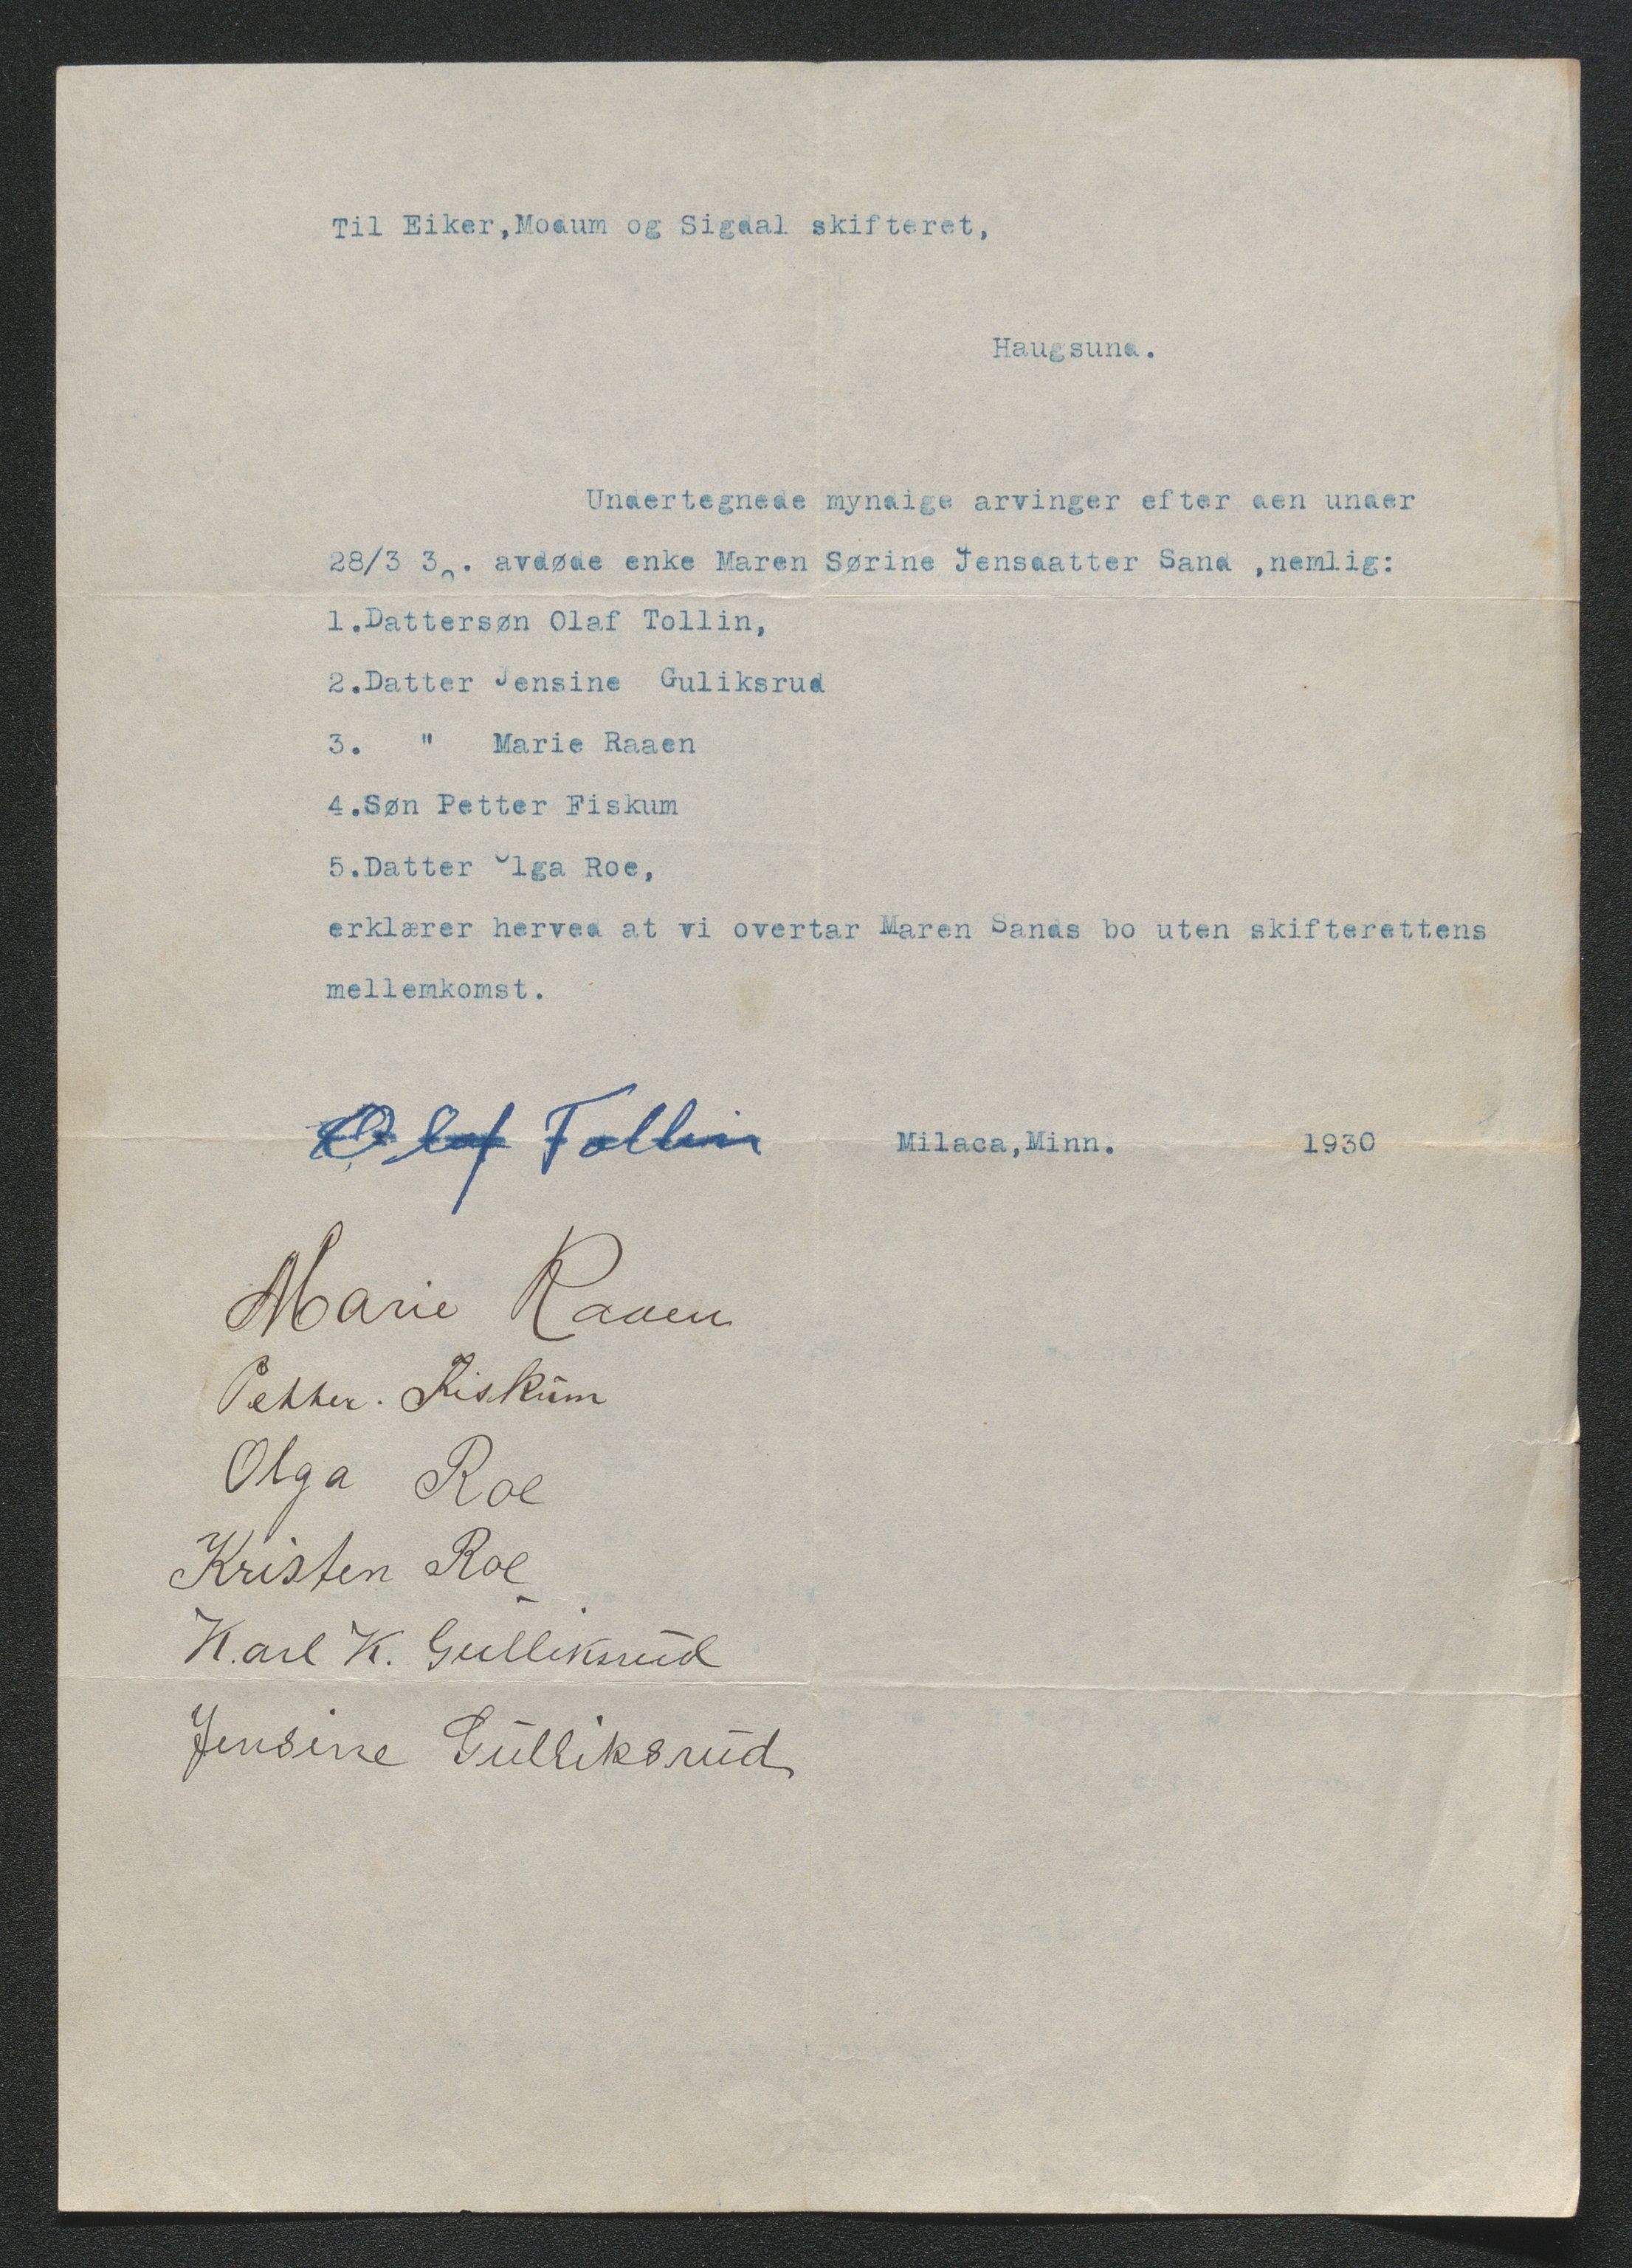 Til Eiker,Modum og Sigdal skifteret,
Haugsund.
Undertegnede myndige arvinger efter den under
28/3 30. avdøde enke Maren Sørine Jensdatter Sand ,nemlig:
1.Dattersøn Olaf Tollin,
2.Datter Jensine Guliksrud
3. " Marie Raaen
4.Søn Petter Fiskum
5.Datter Olga Roe,
erklærer herved at vi overtar Maren Sands bo uten skifterettens
mellemkomst.
Olaf Tollin Milaca,Minn. 1930
Marie Raaen
Petter. Fiskum
Olga Roe
Kristen Roe
Karl K. Gulliksrud
Jensine Gulliksrud